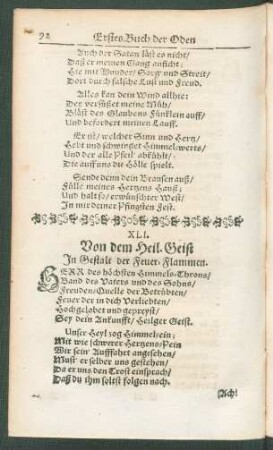 92 Erstes Buch der Oden
Auch der Satan läst es nicht/
Daß er meinen Gang anficht:
Hie mit Wunder/ Sorg und Streit/
Dort durch falsche Lust und Freud.
Alles kan dein Wind allhie:
Der versüsset meine Müh/
Bläst des Glaubens Fünklein auff/
Und befördert meinen Lauff.
Er ist/ welcher Sinn und Hertz/
Hebt und schwinget Himmelwerts/
Und der alle Pfeil' abkühlt/
Die auff uns die Hölle spielt.
Sende denn dein Brausen auß/
Fülle meines Hertzens Hauß;
Und halt so/ erwünschter West/
In mir deiner Pfingsten Fest.
XLI.
Von dem Heil. Geist
In Gestalt der Feuer-Flammen.
HERR des höchsten Himmels-Throns/
Band des Vaters und des Sohns/
Freuden-Quelle der Betrübten/
Feuer der in dich Verliebten/
Hochgelobet und gepreyst/
Sey dein Ankunfft/ Heilger Geist.
Unser Heyl zog Himmelein;
Mit wie schwerer Hertzens-Pein
Wir sein' Aufffahrt angesehen/
Must' er selber uns gestehen/
Da er uns den Trost einsprach/
Daß du ihm soltst folgen nach.
Ach!